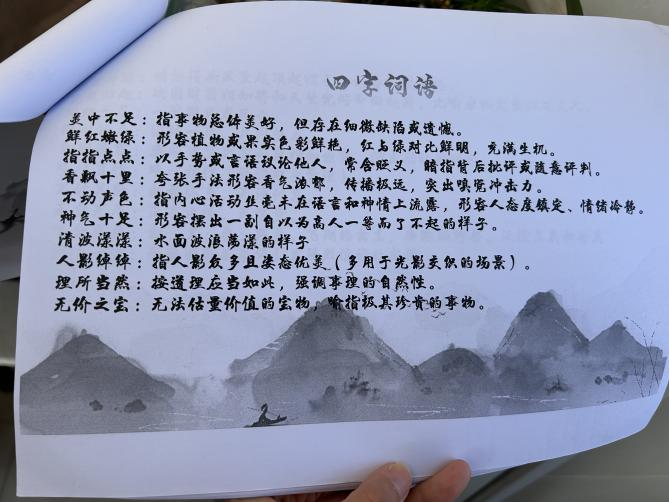 四字词语
美中不足：指事物总体美好，但存在细微缺陷或遗憾。
鲜红嫩绿：形容植物或果实色彩鲜艳，红与绿对比鲜明，充满生机。
指指点点：以手势或言语议论他人，常含贬义，暗指背后批评或随意评判。
香飘十里：夸张手法形容香气浓郁，传播极远，突出嗅觉冲击力。
不动声色：指内心活动丝毫未在语言和神情上流露，形容人态度镇定、情绪冷静。
神气十足：形容摆出一副自以为高人一等而了不起的样子。
清波漾漾：水面波浪荡漾的样子
人影绰绰：指人影众多且姿态优美（多用于光影交织的场景）。
理所当然：按道理应当如此，强调事理的自然性。
无价之宝：无法估量价值的宝物，喻指极其珍贵的事物。